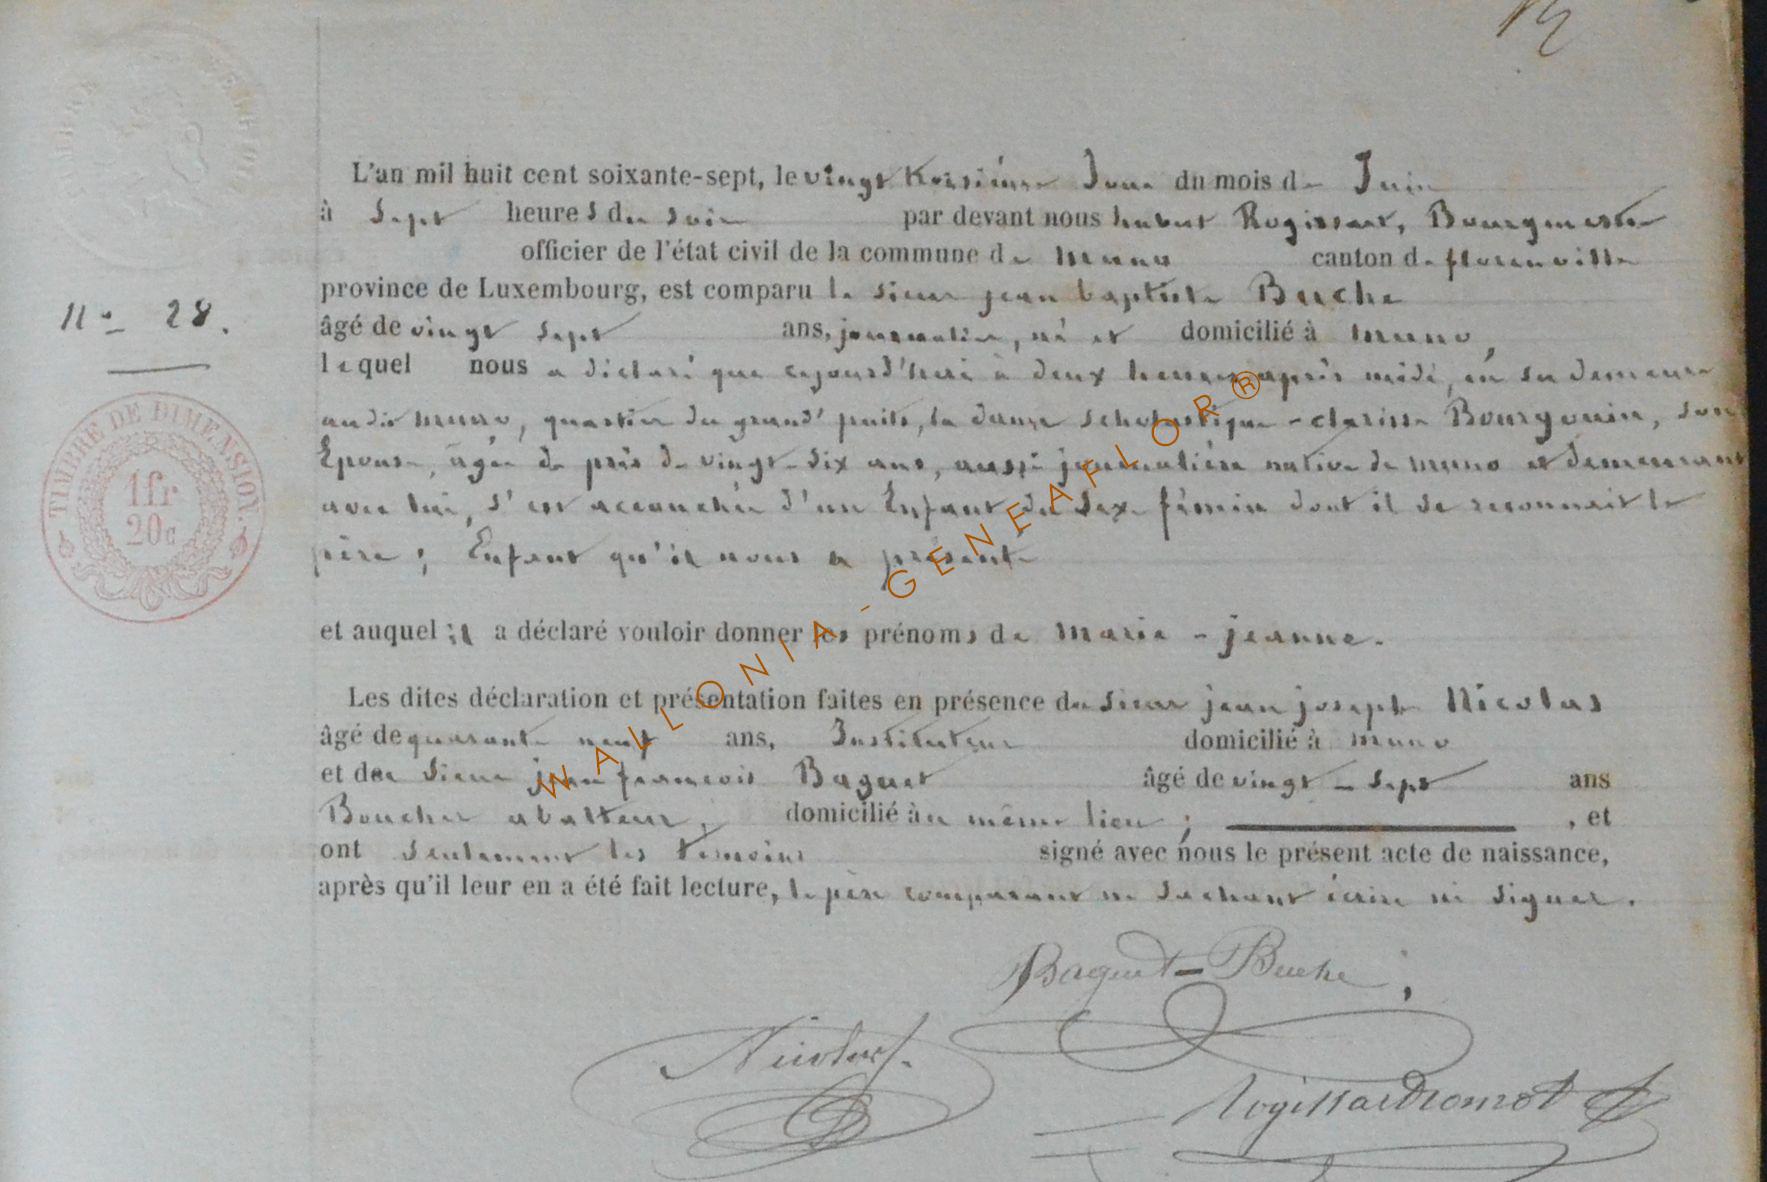 L'an mil huit cent soixante-sept, le vingt troisième Jour du mois de Juin
à Sept heures du soir par devant nous hubert Rogissart, Bourgmestre
officier de l'état civil de la commune de muno canton de florenville
province de Luxembourg, est comparu le sieur jean baptiste Buche
N° 28.
âgé de vingt sept ans, journalier, né et domicilié à muno,
lequel nous a déclaré que cejourd'hui à deux heures après midi, en sa demeure
audit muno, quartier du grand' puits, la dame Scholastique-clarisse Bourguin, son
Epouse, âgée de près de vingt-six ans, aussi journalière native de muno et demeurant
avec lui, s'est accouchée d'un Enfant du sexe féminin dont il se reconnait le
père ; Enfant qu'il nous a présenté
TIMBRE DE DIMENSION.
1fr
20c
et auquel il a déclaré vouloir donner les prénoms de marie-jeanne.
Les dites déclaration et présentation faites en présence du sieur jean joseph Nicolas
âgé de quarante neuf ans, Instituteur domicilié à muno
et du sieur jean françois Baguet âgé de vingt-sept ans
Boucher abatteur, domicilié au même lieu ; , et
ont seulement les témoins signé avec nous le présent acte de naissance,
après qu'il leur en a été fait lecture, le père comparant ne sachant écrire ni signer.
Baguet-Buche
Nicolas.
WALLONIA-GENEAFLOR®